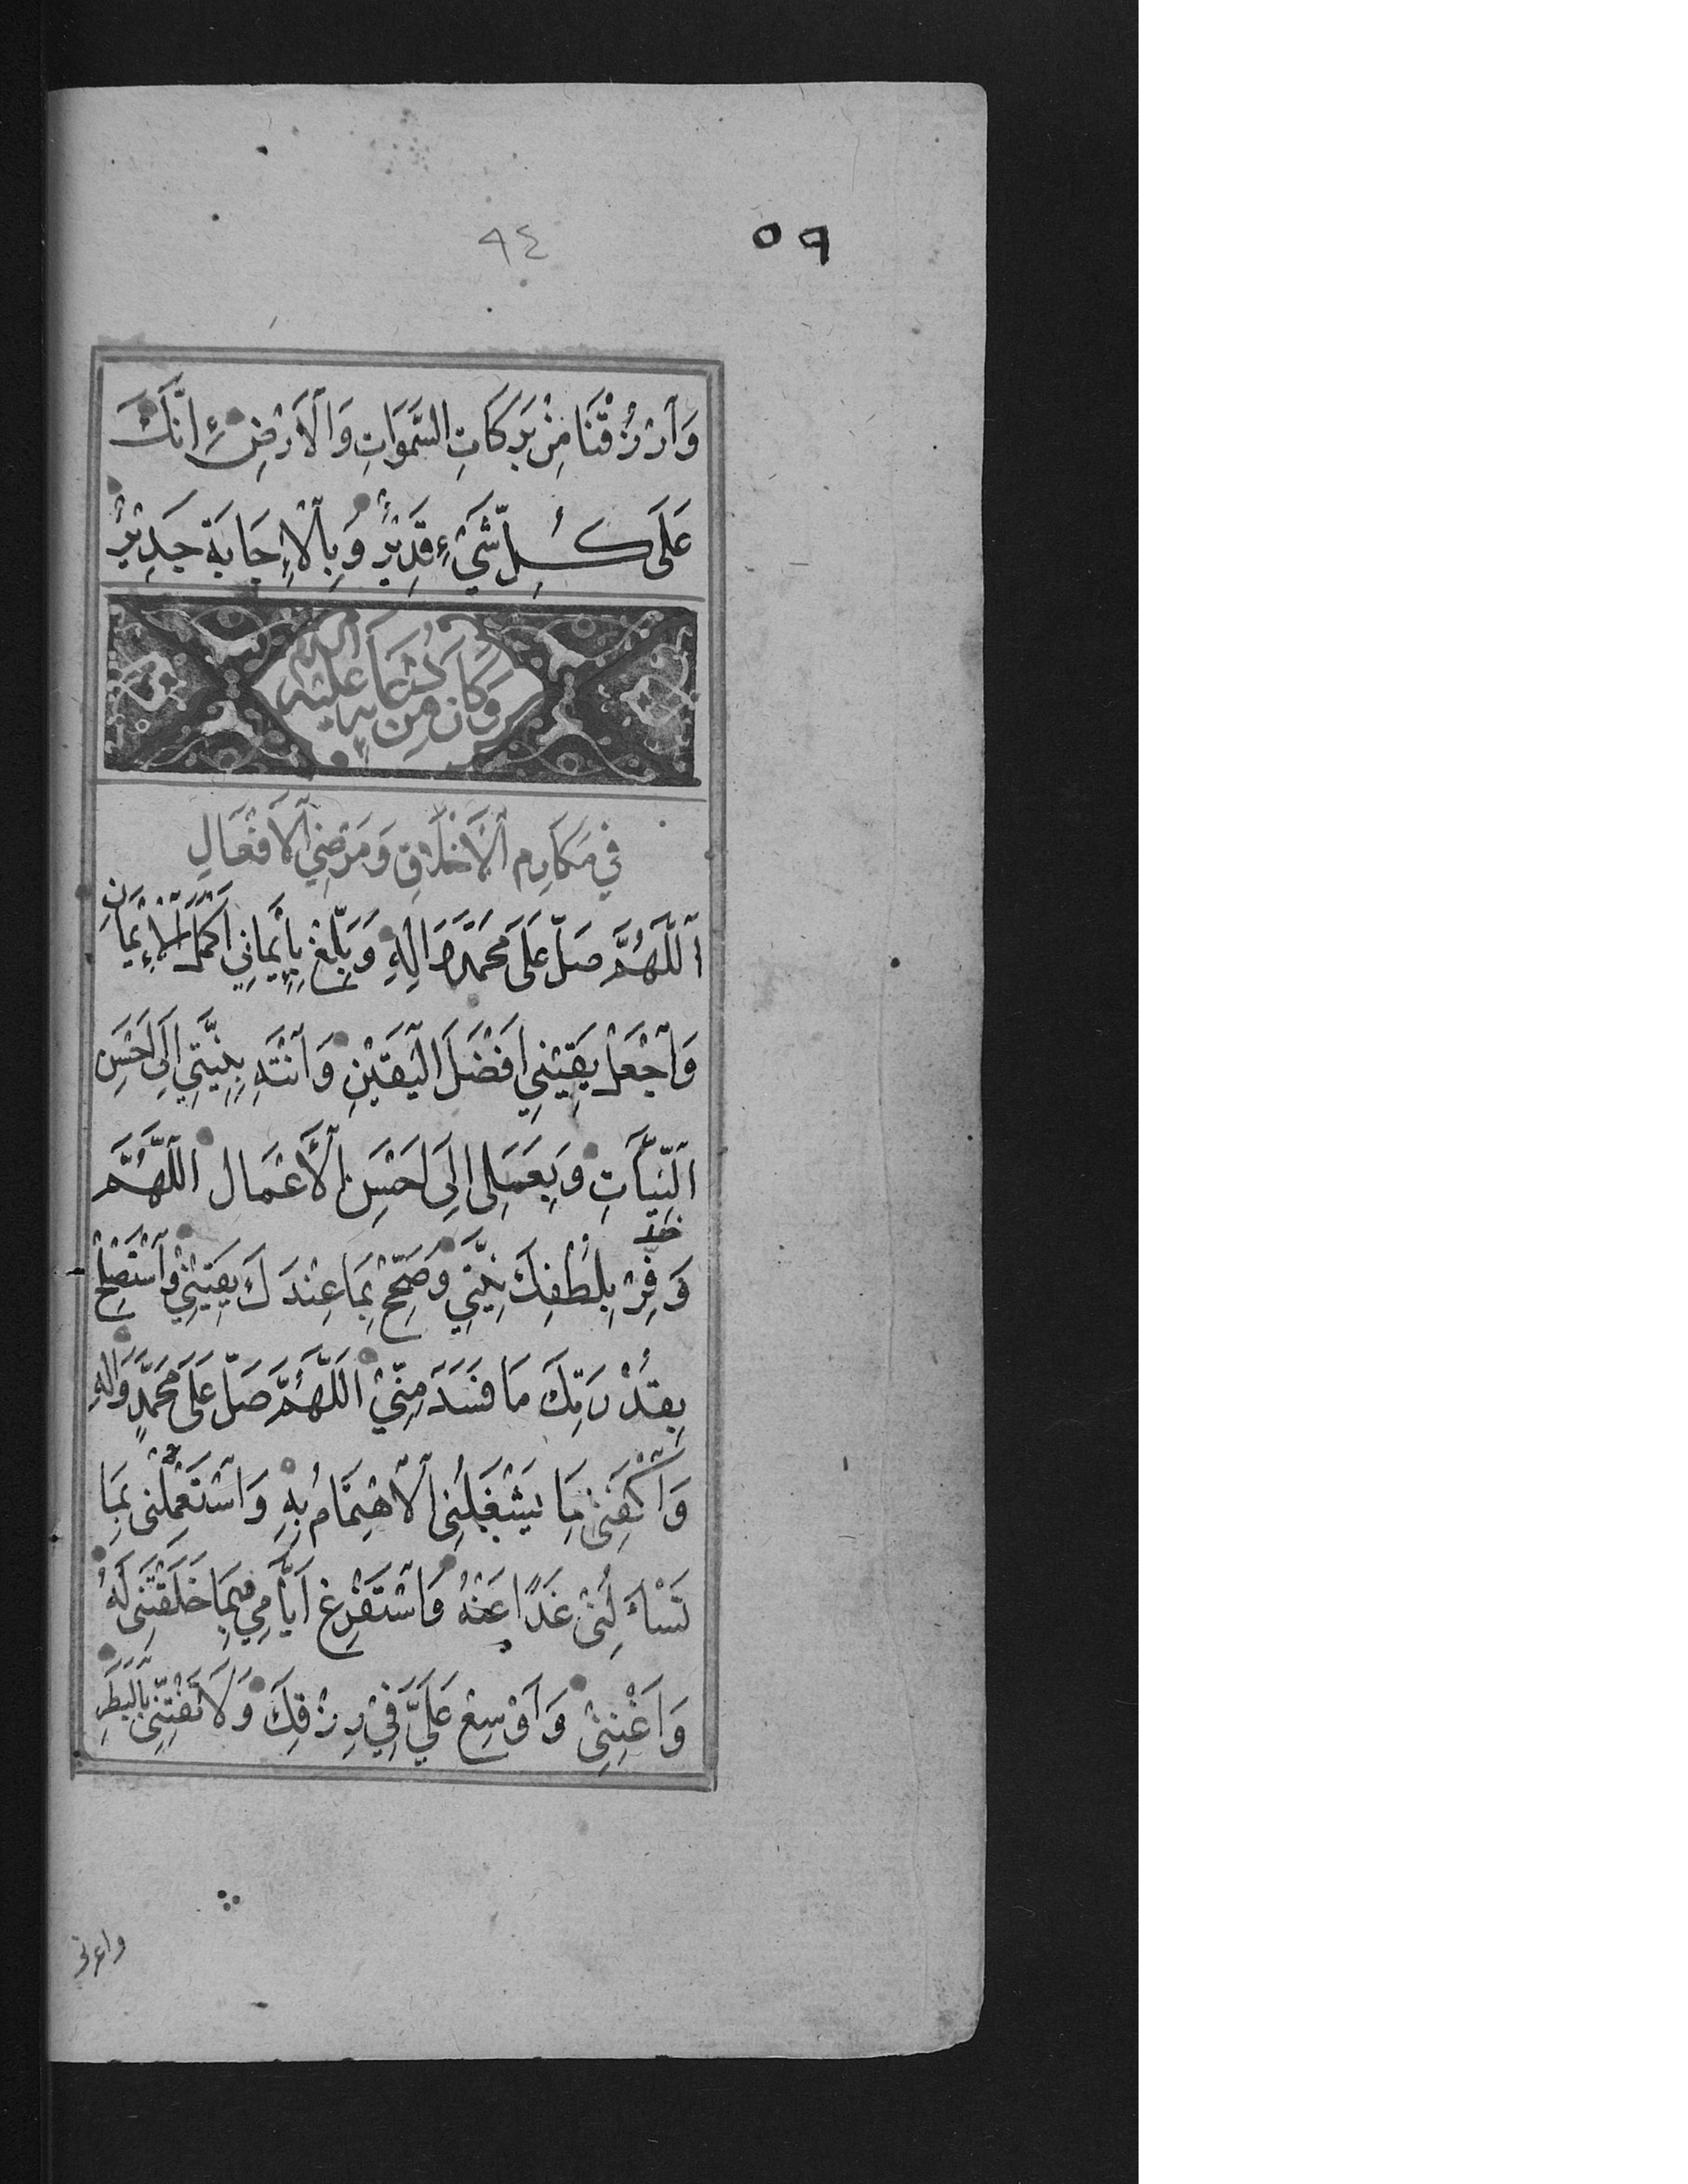 ٩٤ ٥٩
وَٱرْزُقْنَا مِنْ بَرَكَاتِ السَّمَوَاتِ وَٱلْأَرْضِ إِنَّكَ
عَلَى كُلِّ شَيْءٍ قَدِيْرٌ وَبِٱلْإِجَابَةِ جَدِيْرٌ
وَكَانَ مِنْ دُعَائِهِ عَلَيْهِ السلام
فِي مَكَارِمِ ٱلْأَخْلَاقِ وَمَرْضِيِّ ٱلْأَفْعَالِ
اَللَّهُمَّ صَلِّ عَلَى مُحَمَّدٍ وَاٰلِهِ وَبَلِّغْ بِإِيْمَانِي أَكْمَلَ الْإِيْمَانِ
وَٱجْعَلْ يَقِيْنِي اَفْضَلَ الْيَقِيْنِ وَٱنْتَهِ بِنِيَّتِي اِلَى اَحْسَنِ
اَلنِّيَّاتِ وَبِعَمَلِى اِلَى اَحْسَنِ ٱلْأَعْمَالِ اَللَّهُمَّ
وَفِّرْ بِلُطْفِكَ نِيَّتِي وَصَحِّحْ بِمَا عِنْدَكَ يَقِيْنِيْ وَٱسْتَصْلِحْ
بِقُدْرَتِكَ مَا فَسَدَ مِنِّيْ اَللَّهُمَّ صَلِّ عَلَى مُحَمَّدٍ وَاٰلِهِ
وَٱكْفِنِىْ مَا يَشْغَلُنِى ٱلْاِهْتِمَامُ بِهِ وَٱسْتَعْمِلْنِى بِمَا
تَسْأَلُنِىْ غَدًا عَنْهُ وَٱسْتَفْرِغْ اَيَّامِي فِيْمَا خَلَقْتَنِى لَهُ
وَاَغْنِنِىْ وَاَوْسِعْ عَلَيَّ فِيْ رِزْقِكَ وَلَا تَفْتِنِّى بِالْبَطَرِ
واعزنى